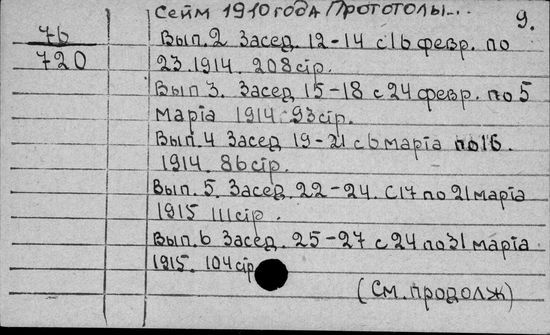 Сейм 1910 года Прототолы... 9.
76
720
Вып. 2 Засед. 12-14 с 16 февр. по
23.1914. 208 стр.
Вып 3. Засед 15-18 с 24 февр. по 5
марта 1914. 93 стр.
Вып. 4 Засед 19-21 с 6 марта по 16.
1914. 86 стр.
Вып. 5. Засед. 22-24. С 17 по 21 марта
1915 111 стр.
Вып. 6 Засед. 25-27 с 24 по 31 марта
1915. 104 стр
(См. продолж)